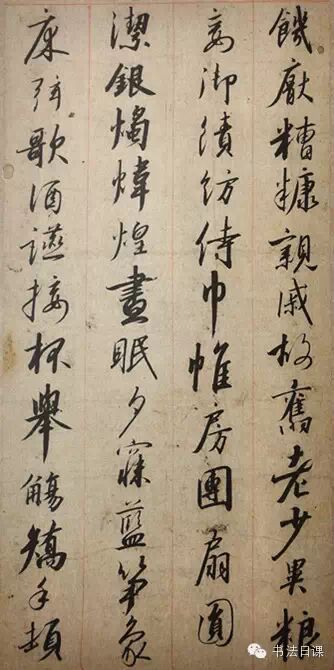 饑厭糟糠親戚故舊老少異糧
妾御績紡侍巾帷房團扇圓
潔銀燭煒煌晝眠夕寐藍筍象
床弦歌酒讌接杯舉觴矯手頓
书法日课